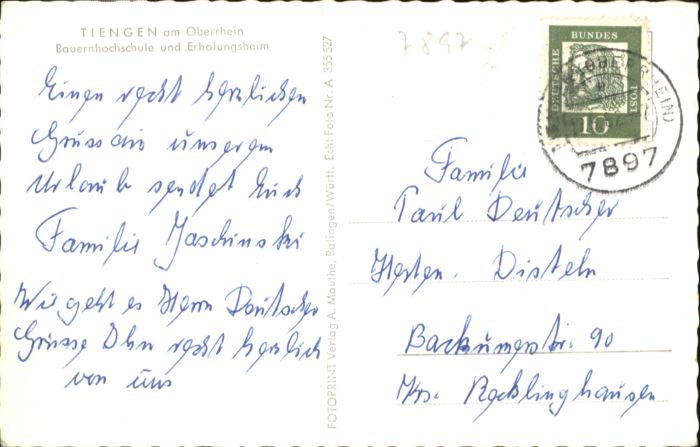 TIENGEN am Oberrhein
Bauernhochschule und Erholungsheim
Einen recht herzlichen
Gruss aus unserem
Urlaub sendet Euch
Familie Jaschinski
Wie geht es Herrn Deutscher
Grüsse Ihn recht herzlich
von uns
FOTOPRINT Verlag A. Mauthe, Balingen/Württ. Echt Foto Nr. A 355 527
7897
DEUTSCHE BUNDES POST
10
7897
Familie
Paul Deutscher
Herten. Disteln
Backumerstr. 90
Krs. Recklinghausen